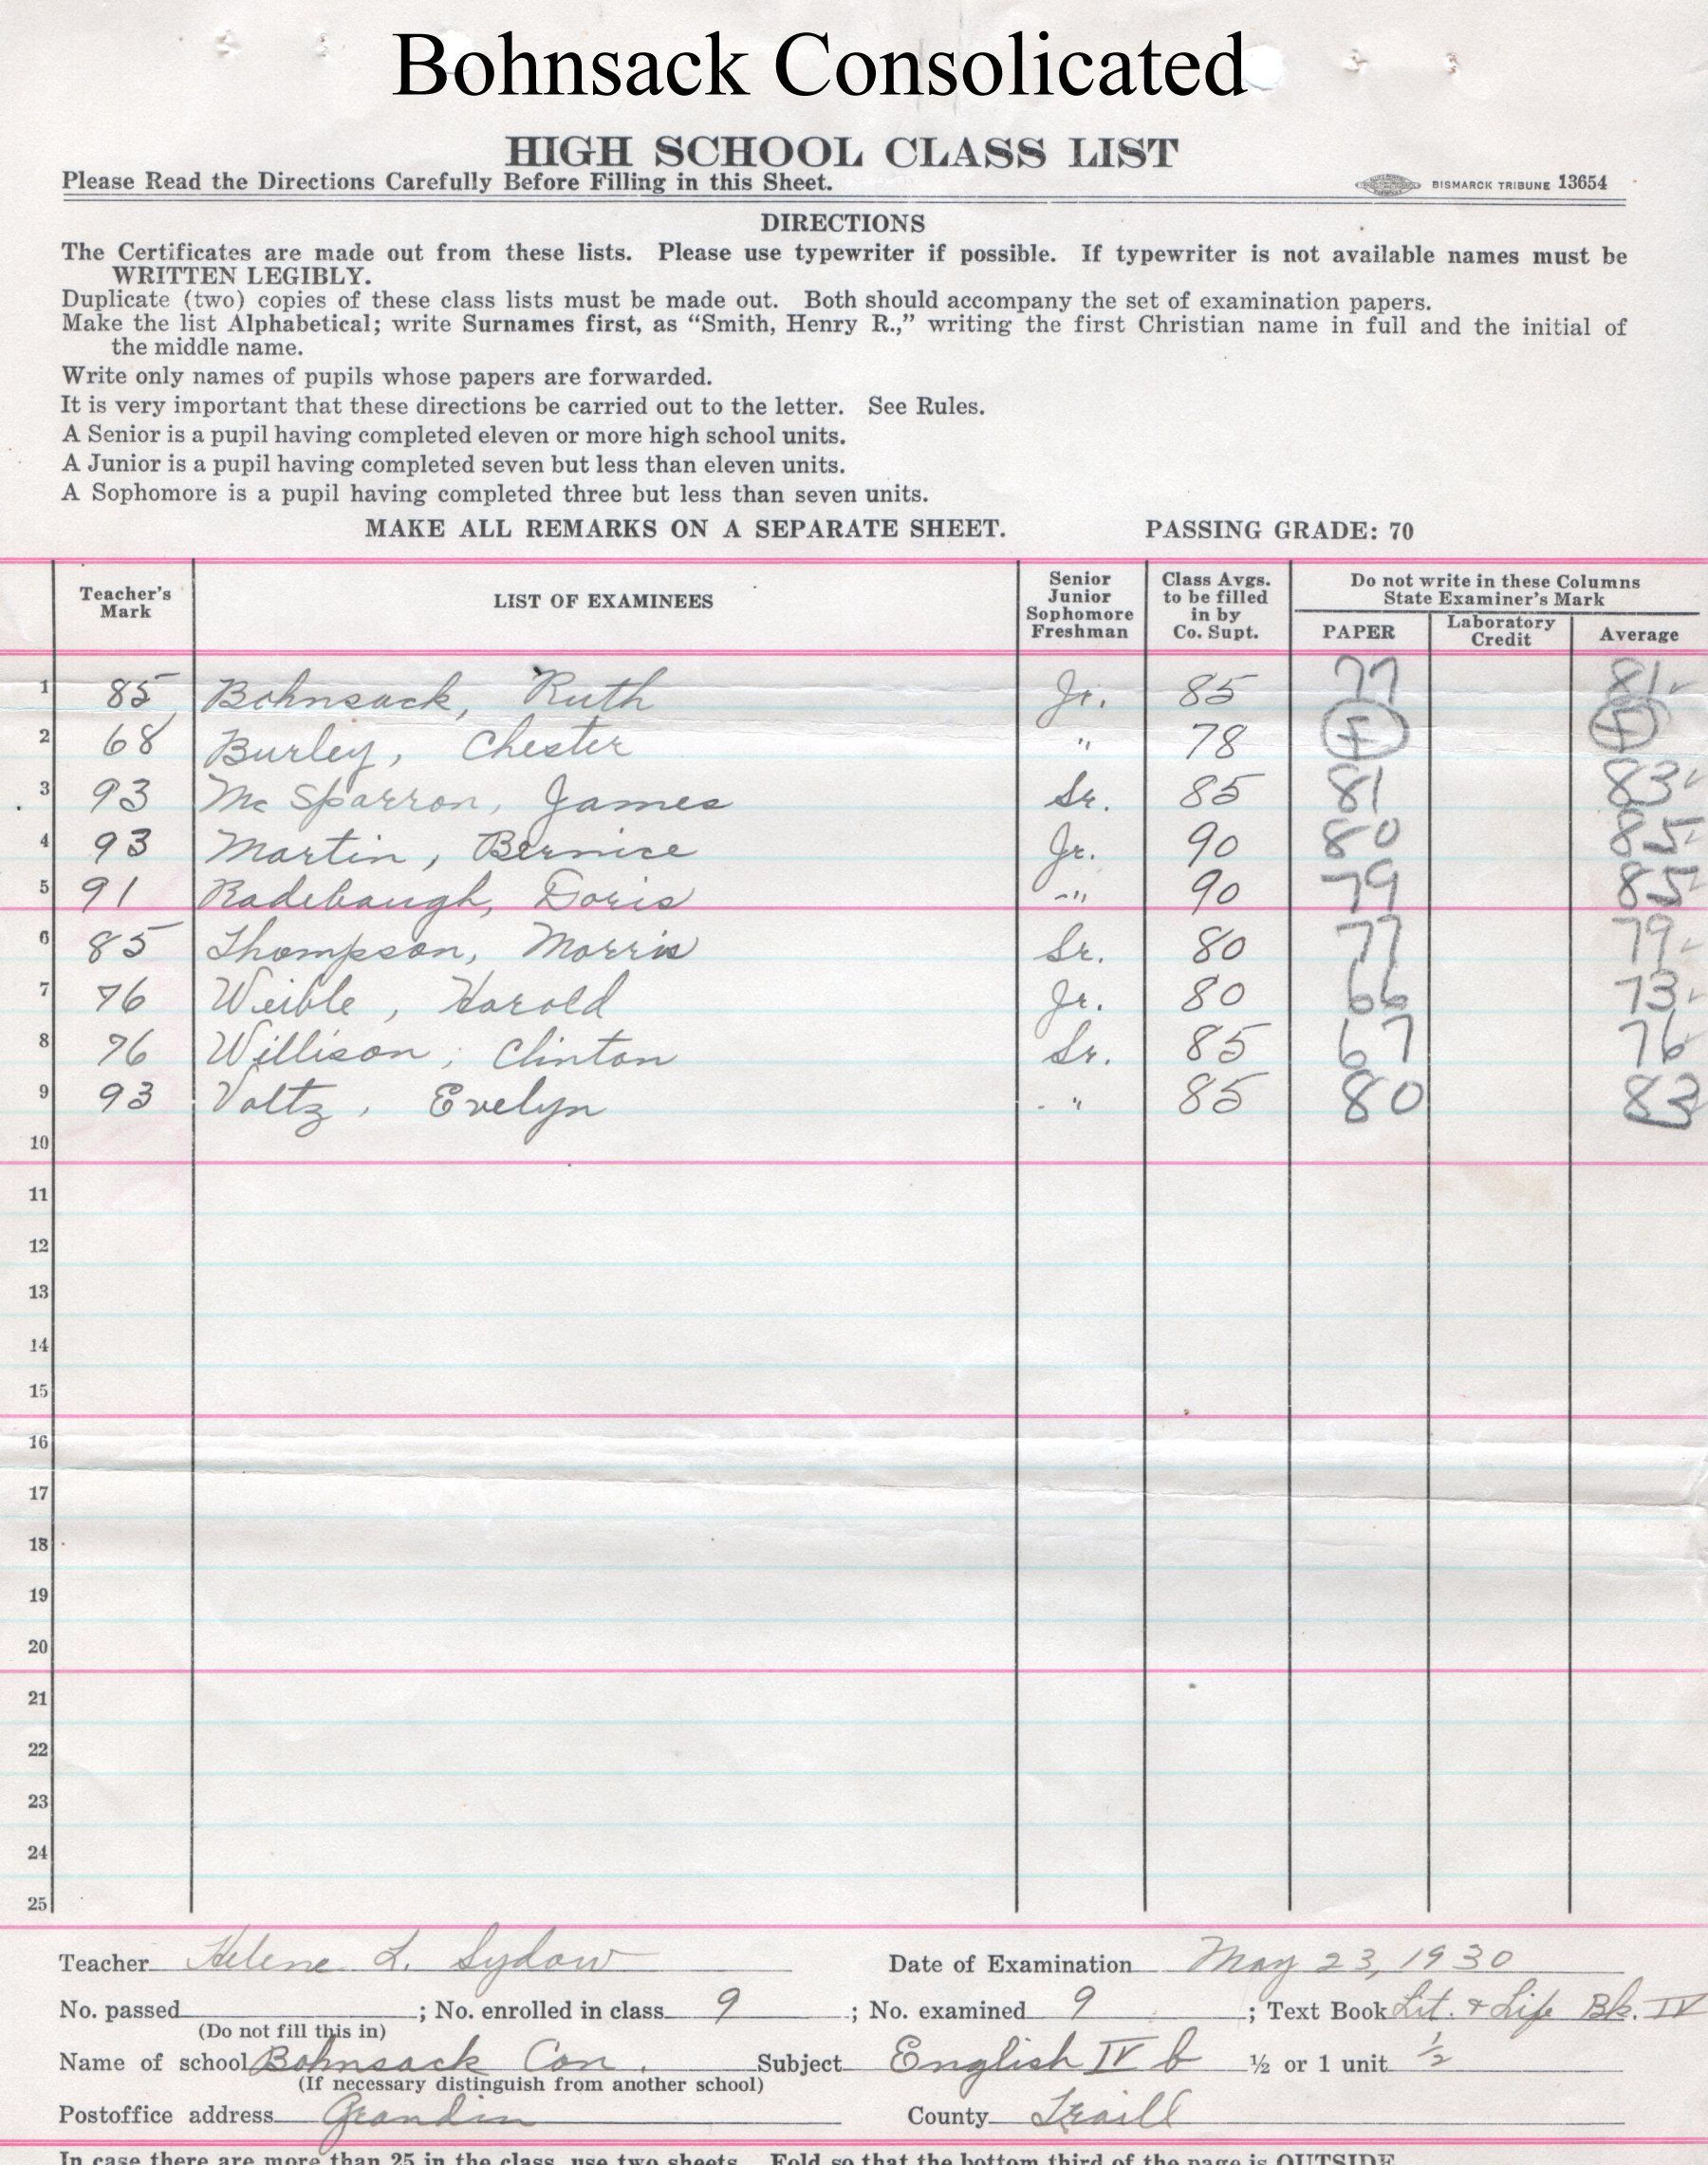 Bohnsack Consolicated
HIGH SCHOOL CLASS LIST
Please Read the Directions Carefully Before Filling in this Sheet. BISMARCK TRIBUNE 13654
DIRECTIONS
The Certificates are made out from these lists. Please use typewriter if possible. If typewriter is not available names must be
WRITTEN LEGIBLY.
Duplicate (two) copies of these class lists must be made out. Both should accompany the set of examination papers.
Make the list Alphabetical; write Surnames first, as “Smith, Henry R.,” writing the first Christian name in full and the initial of
the middle name.
Write only names of pupils whose papers are forwarded.
It is very important that these directions be carried out to the letter. See Rules.
A Senior is a pupil having completed eleven or more high school units.
A Junior is a pupil having completed seven but less than eleven units.
A Sophomore is a pupil having completed three but less than seven units.
MAKE ALL REMARKS ON A SEPARATE SHEET. PASSING GRADE: 70
Teacher's Mark LIST OF EXAMINEES Senior Junior Sophomore Freshman Class Avgs. to be filled in by Co. Supt. Do not write in these Columns State Examiner's Mark PAPER Laboratory Credit Average
1 85 Bohnsack, Ruth Jr. 85 77 81 ✓
2 68 Burley, Chester " 78 F F
3 93 Mc Sparron, James Sr. 85 81 83 ✓
4 93 Martin, Bernice Jr. 90 80 85 ✓
5 91 Radebaugh, Doris -" 90 79 85 ✓
6 85 Thompson, Morris Sr. 80 77 79 ✓
7 76 Weible, Harold Jr. 80 66 73 ✓
8 76 Willison, Clinton Sr. 85 67 76
9 93 Voltz, Evelyn " 85 80 83
10
11
12
13
14
15
16
17
18
19
20
21
22
23
24
25
Teacher Helene L. Sydow Date of Examination May 23, 1930
No. passed ; No. enrolled in class 9 ; No. examined 9 ; Text Book Lit. & Life Bk. IV
(Do not fill this in)
Name of school Bohnsack Con. Subject English IV b ½ or 1 unit ½
(If necessary distinguish from another school)
Postoffice address Grandin County Traill
In case there are more than 25 in the class, use two sheets. Fold so that the bottom third of the page is OUTSIDE